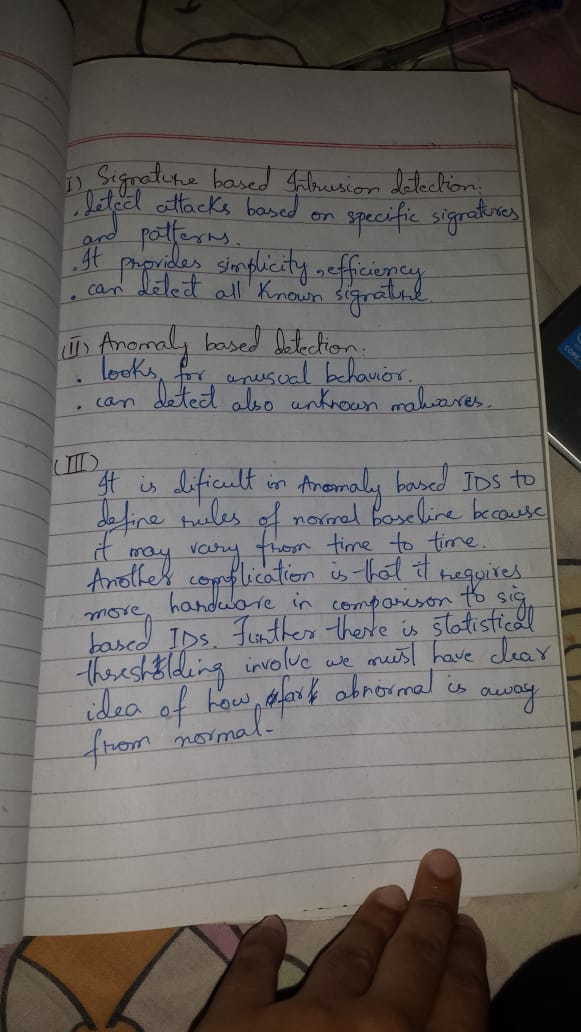 I) Signature based Intrusion detection:
. detect attacks based on specific signatures
and patterns.
. It provides simplicity, efficiency
. can detect all known signature.
(II) Anomaly based detection:
. looks for unusual behavior.
. can detect also unknown malwares.
(III)
It is dificult in Anomaly based IDS to
define rules of normal baseline because
it may vary from time to time.
Another complication is that it requires
more hardware in comparison to sig
based IDS. Further there is statistical
thresholding involve we must have clear
idea of how far abnormal is away
from normal-